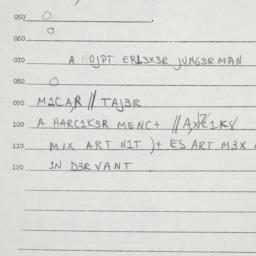 050 O
O
060
070 A OJPT ERL3X3R JUNG3R MAN
080 O
090 M1CA,R // TAJ3R
100 A HARC1K3R MENC+ //
110 M1X ART N1T )+ ES ART M3X
120 1N D3R VANT